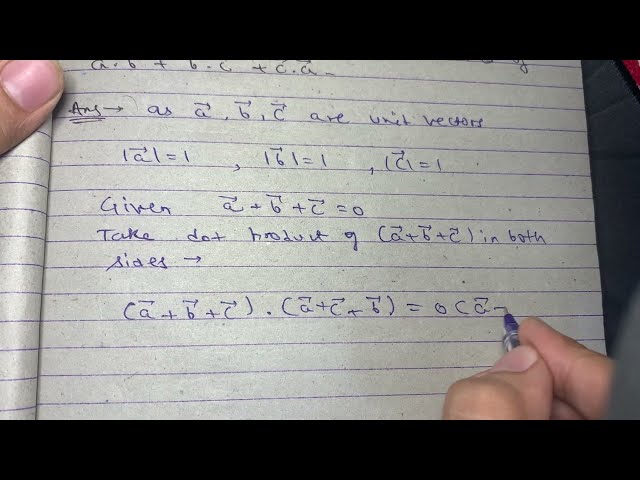 a⃗.b⃗ + b⃗.c⃗ + c⃗.a⃗ -
Ans → as a⃗, b⃗, c⃗ are unit vectors
|a⃗|=1 , |b⃗|=1 , |c⃗|=1
Given a⃗ + b⃗ + c⃗ = 0
Take dot product of (a⃗+b⃗+c⃗) in both
sides →
(a⃗ + b⃗ + c⃗) . (a⃗ + c⃗ + b⃗) = 0 (a⃗ -